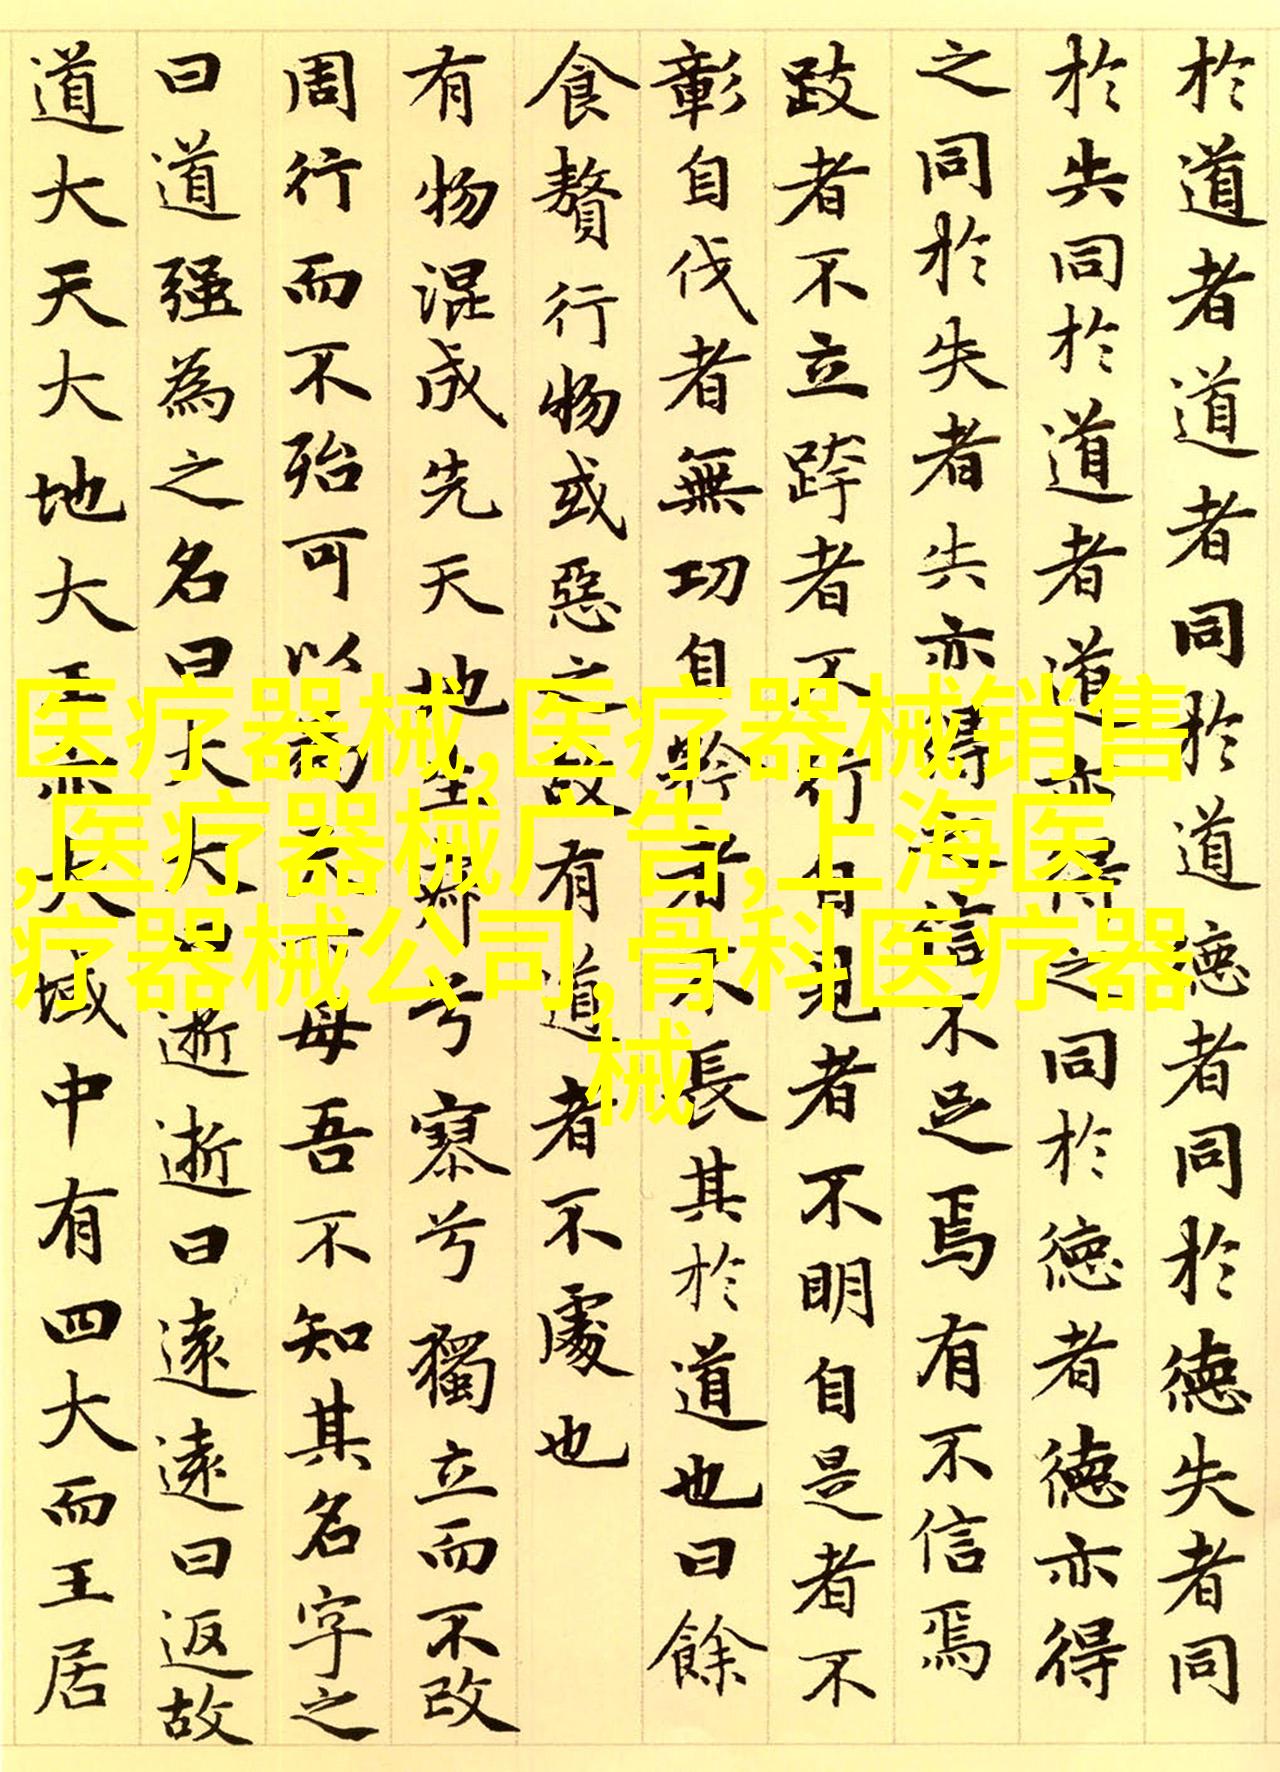 於道者道者同於道德者同於德失者同
於失同於道者道亦得之同於德者德亦得
之同於失者失亦得之信不足焉有不信焉
跂者不立跨者不行自見者不明自是者不
彰自伐者無功自矜者不長其於道也曰餘
食贅行物或惡之故有道者不處也
有物混成先天地生寂兮寥兮獨立而不改
周行而不殆可以為天下母吾不知其名字之
曰道强為之名曰大大曰逝逝曰遠遠曰返故
道大天大地大王亦大域中有四大而王居
医疗器械,医疗器械销售
,医疗器械广告,上海医
疗器械公司,骨科医疗器
械